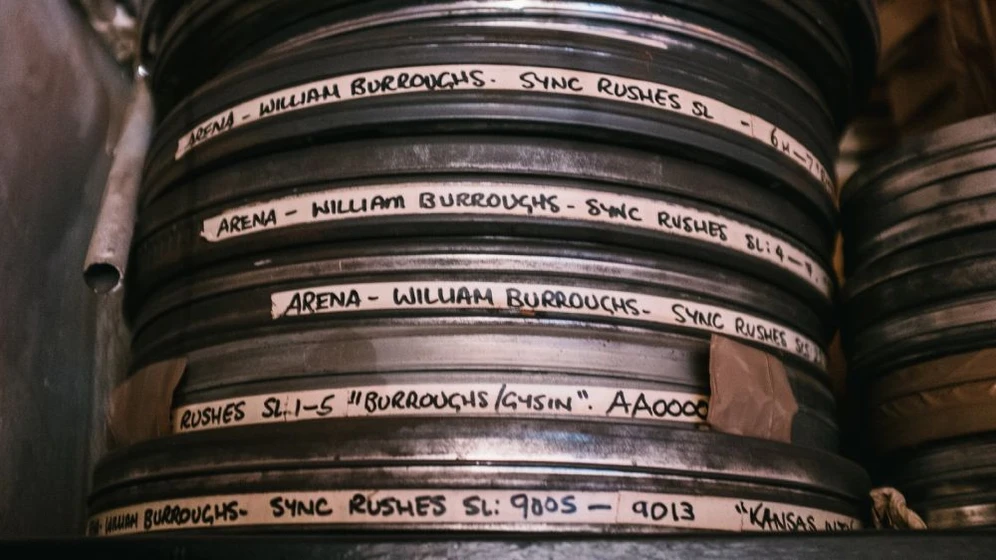 ARENA - WILLIAM BURROUGHS. SYNC RUSHES SL -
ARENA - WILLIAM BURROUGHS - SYNC RUSHES SL: 4 -
ARENA - WILLIAM BURROUGHS - SYNC RUSHES
RUSHES SL 1-5 "BURROUGHS/GYSIN". AA0000
WILLIAM BURROUGHS - SYNC RUSHES SL: 9005 - 9013 "KANSAS